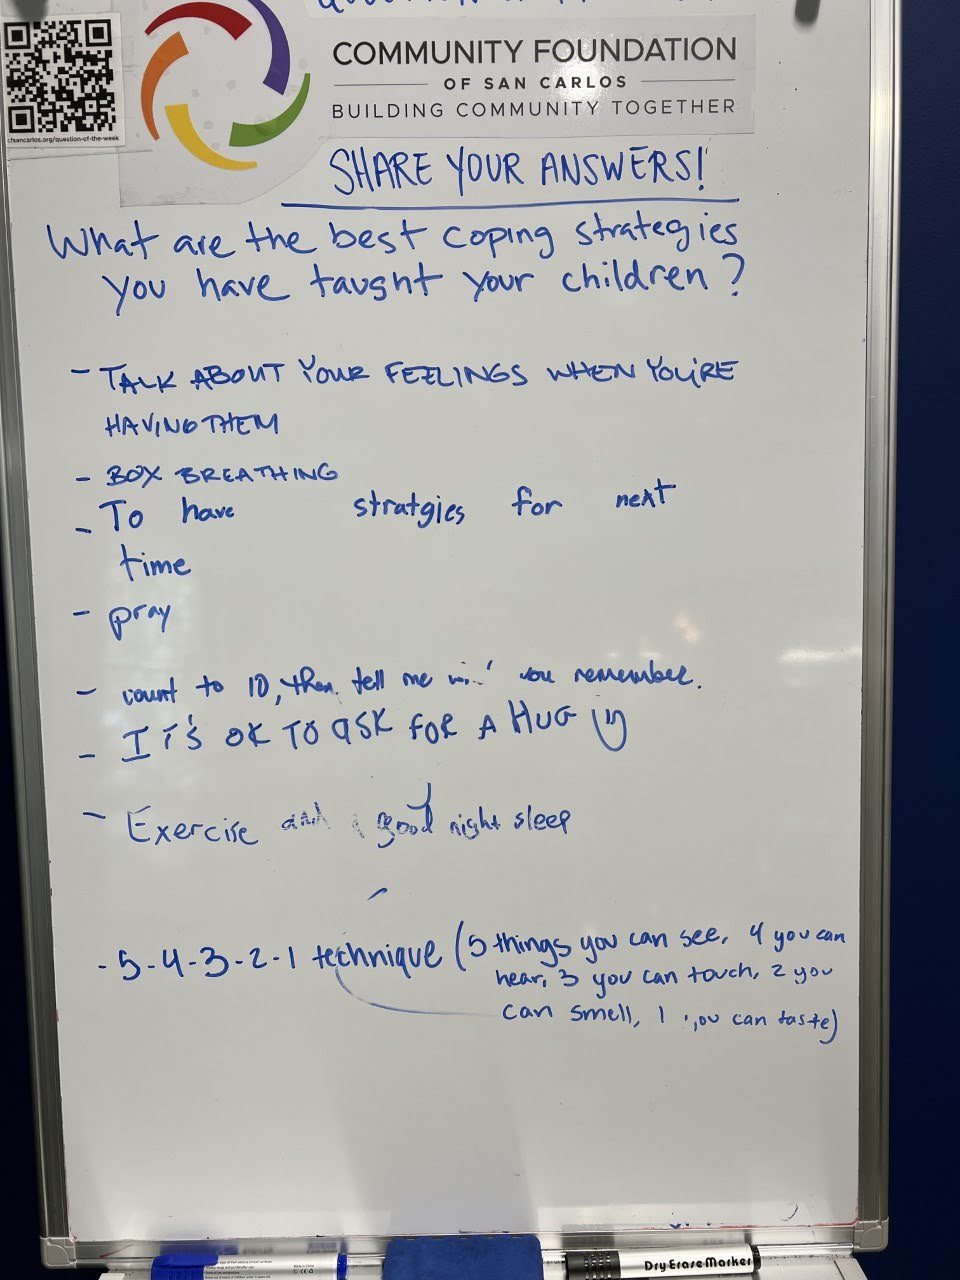 COMMUNITY FOUNDATION
OF SAN CARLOS
BUILDING COMMUNITY TOGETHER
cfsancarlos.org/question-of-the-week
SHARE YOUR ANSWERS!
What are the best coping strategies
you have taught your children?
- TALK ABOUT YOUR FEELINGS WHEN YOU'RE
HAVING THEM
- BOX BREATHING
- To have stratgies for next
time
- pray
- count to 10, then tell me you remember.
- IT'S OK TO ASK FOR A HUG
- Exercise and a good night sleep
- 5-4-3-2-1 technique (5 things you can see, 4 you can
hear, 3 you can touch, 2 you
can smell, 1 you can taste)
Dry Erase Marker